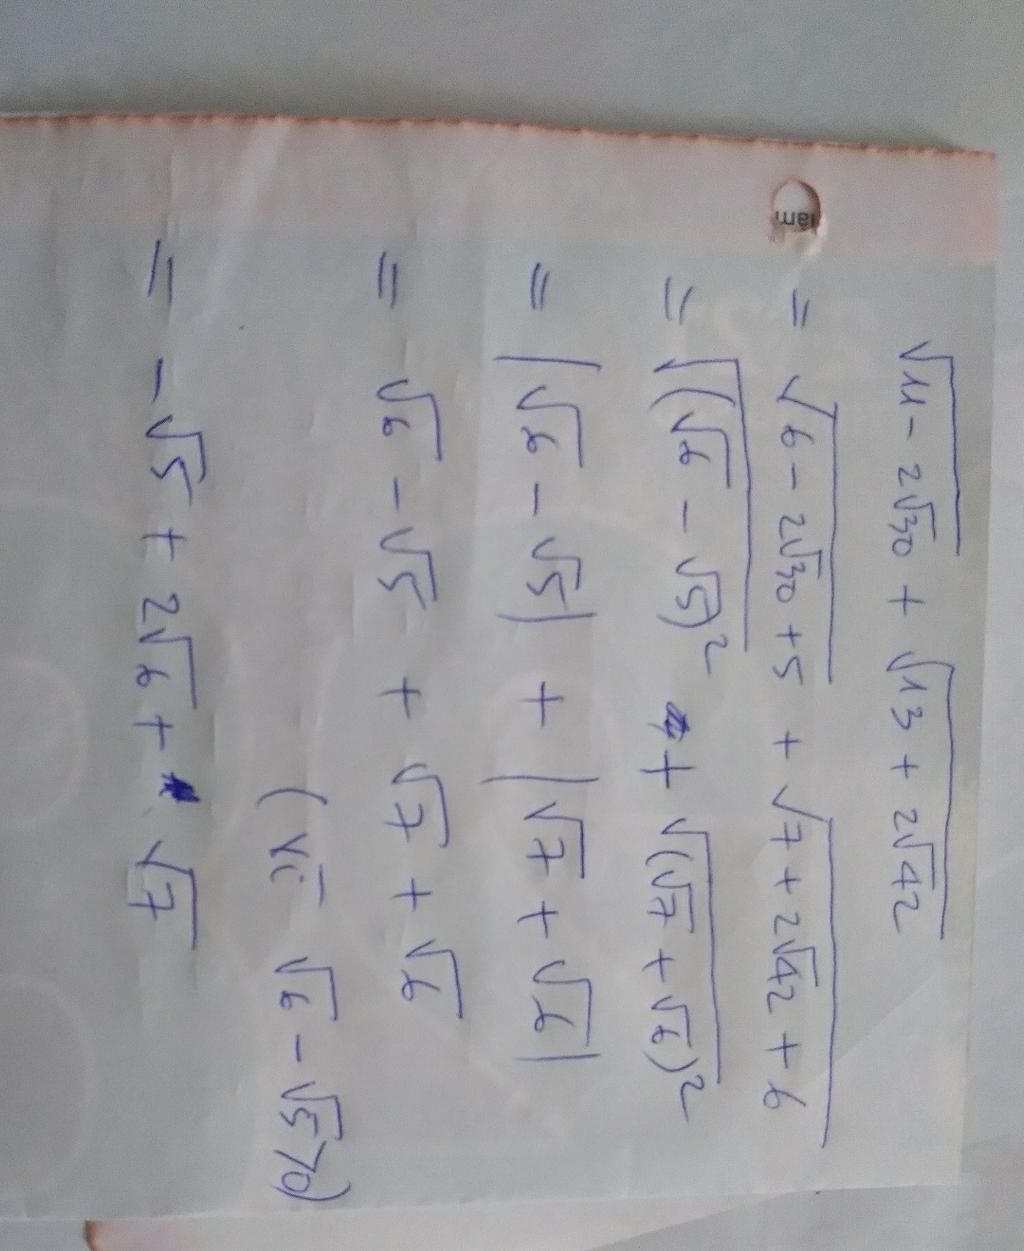 √11 - 2√30 + √13 + 2√42
= √6 - 2√30 + 5 + √7 + 2√42 + 6
= √(√6 - √5)² + √(√7 + √6)²
= |√6 - √5| + |√7 + √6|
= √6 - √5 + √7 + √6
(vì √6 - √5 > 0)
= - √5 + 2√6 + √7
lâm